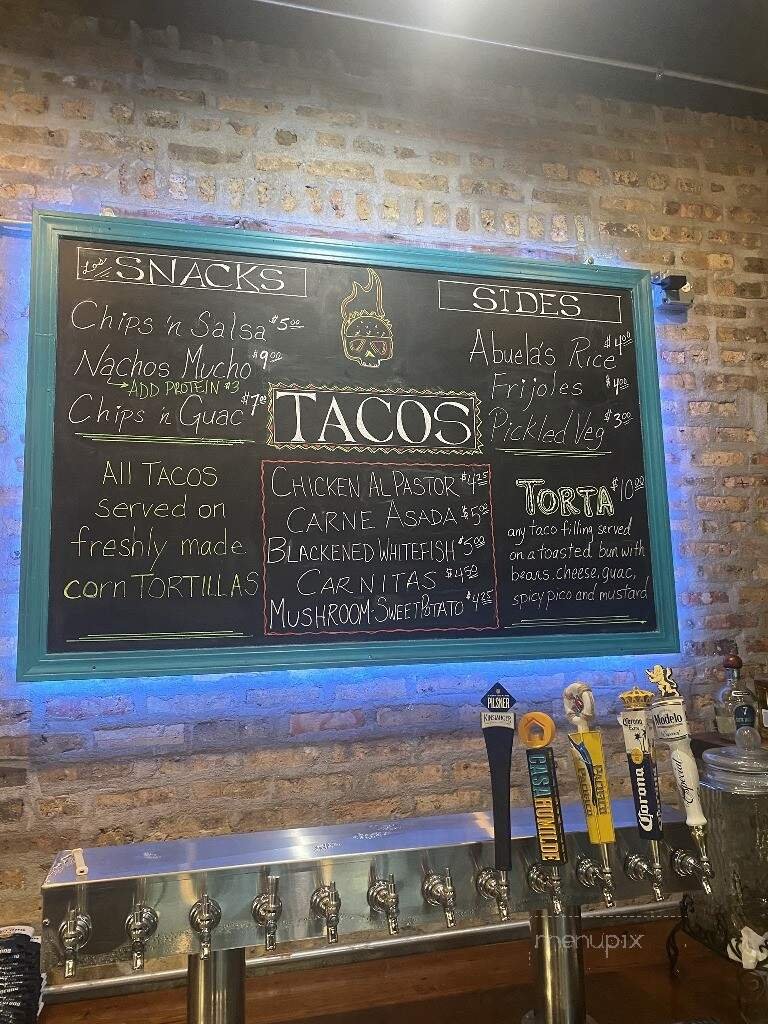 Los SNACKS
Chips 'n Salsa $5.00
Nachos Mucho $9.00
ADD PROTEIN $3
Chips 'n Guac $7.00
All TACOS
served on
freshly made
corn TORTILLAS
TACOS
CHICKEN AL PASTOR $4.25
CARNE ASADA $5.00
BLACKENED WHITEFISH $5.00
CARNITAS $4.50
MUSHROOM-SWEET POTATO $4.25
SIDES
Abuela's Rice $4.00
Frijoles $4.00
Pickled Veg $3.00
TORTA $10.00
any taco filling served
on a toasted bun with
beans, cheese, guac,
spicy pico and mustard
PILSNER
CASA HUMILDE
PACIFICO
Corona
Extra
Corona
Modelo
Especial
Especial
7
menupix